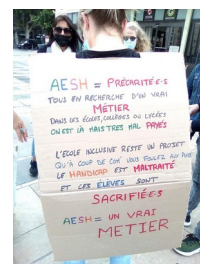 AESH = PRÉCARITÉ.E.S
TOUS EN RECHERCHE D'UN VRAI
MÉTIER
DANS LES ÉCOLES, COLLÈGES OU LYCÉES
ON EST LÀ MAIS TRÈS MAL PAYÉS
L'ÉCOLE INCLUSIVE RESTE UN PROJET
QU'À COUP DE COM' VOUS FOULEZ AUX PIEDS
LE HANDICAP EST MALTRAITÉ
ET CES ÉLÈVES SONT
SACRIFIÉ.E.S
AESH = UN VRAI
METIER